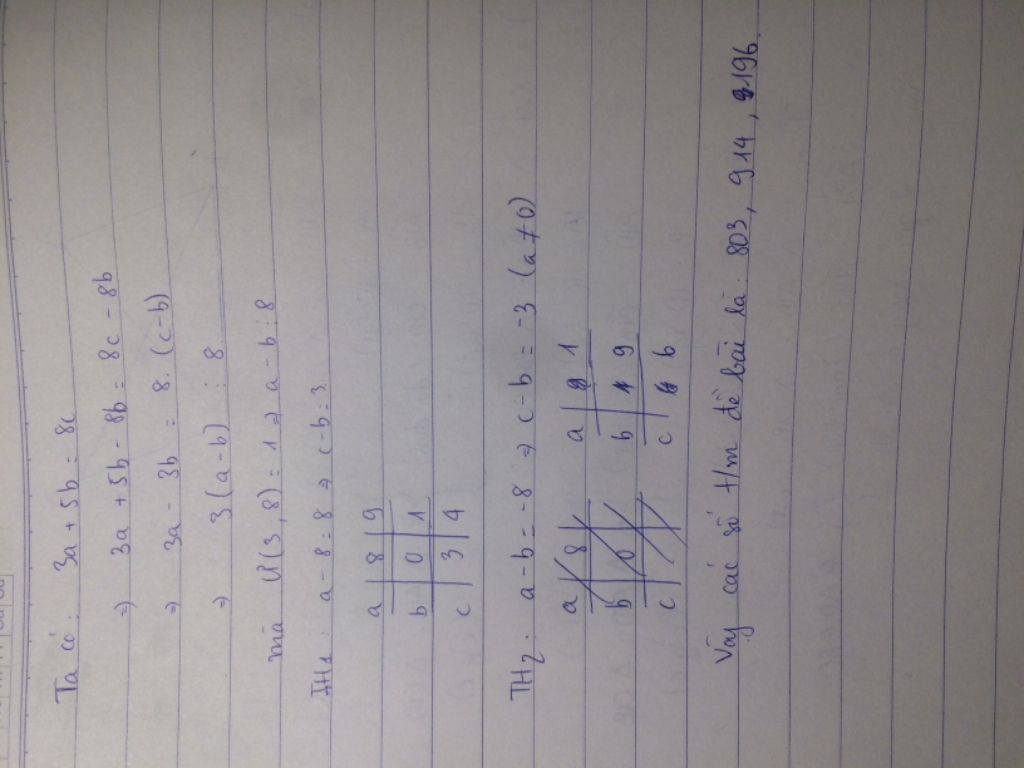 Ta có : 3a + 5b = 8c
=) 3a + 5b - 8b = 8c - 8b
=) 3a - 3b = 8. (c-b)
=) 3 (a-b) ⋮ 8
mà Ư(3,8) = 1 =) a - b ⋮ 8
TH1 : a - 8 = 8 =) c-b = 3
a | 8 | 9
b | 0 | 1
c | 3 | 4
TH2 . a - b = -8 =) c - b = -3 (a ≠ 0)
a | 8 |
b | 0 |
c | |
a | 1
b | 9
c | 6
Vậy các số t/m đề bài là : 803 , 914 , 196.